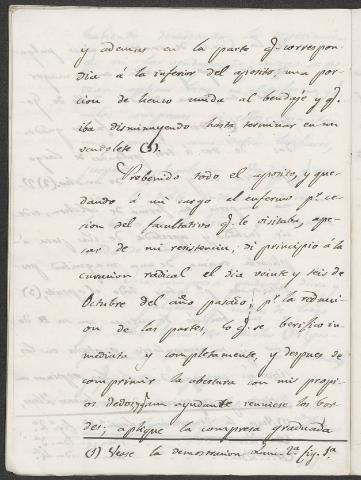 y ademas en la parte q.e correspon
dia á la inferior del aposito, una por
cion de lienzo unida al bendaje y q.e
iba disminuyendo hasta terminar en un
vendolete (1).
Probenido todo el aposito, y que
dando á mi cargo el enfermo p.r ce
cion del facultativo q.e le visitaba, ape
sar de mi resistencia, di principio á la
curacion radical el dia veinte y seis de
Octubre del año pasado; p.r la reduccí
on de las partes, lo q.e se berifico in
mediata y completamente, y despues de
comprimir la abertura con mi propi
os dedos, y un ayudante reuniese los bor
des; aplique la compresa graduada
(1) Vease la demostracion Lam. 2.a fig. 1.a